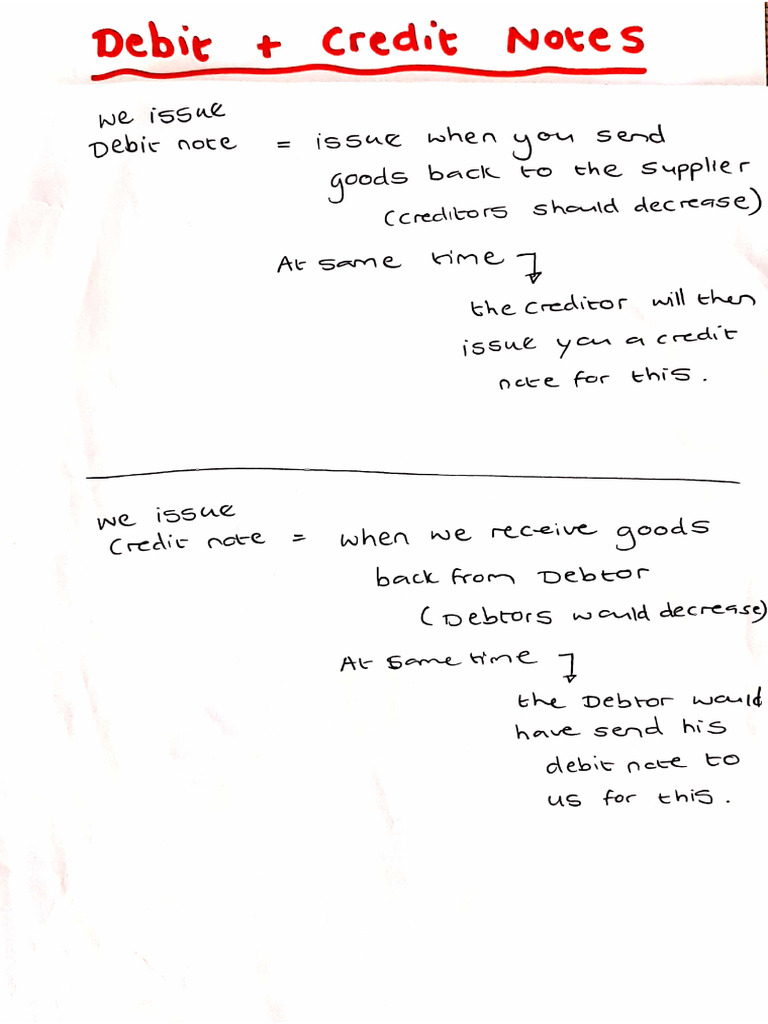 Debit + Credit Notes
we issue
Debit note = issue when you send
goods back to the supplier
(creditors should decrease)
At same time
the creditor will then
issue you a credit
note for this.
we issue
Credit note = when we receive goods
back from Debtor
(Debtors would decrease)
At same time
the Debtor would
have send his
debit note to
us for this.